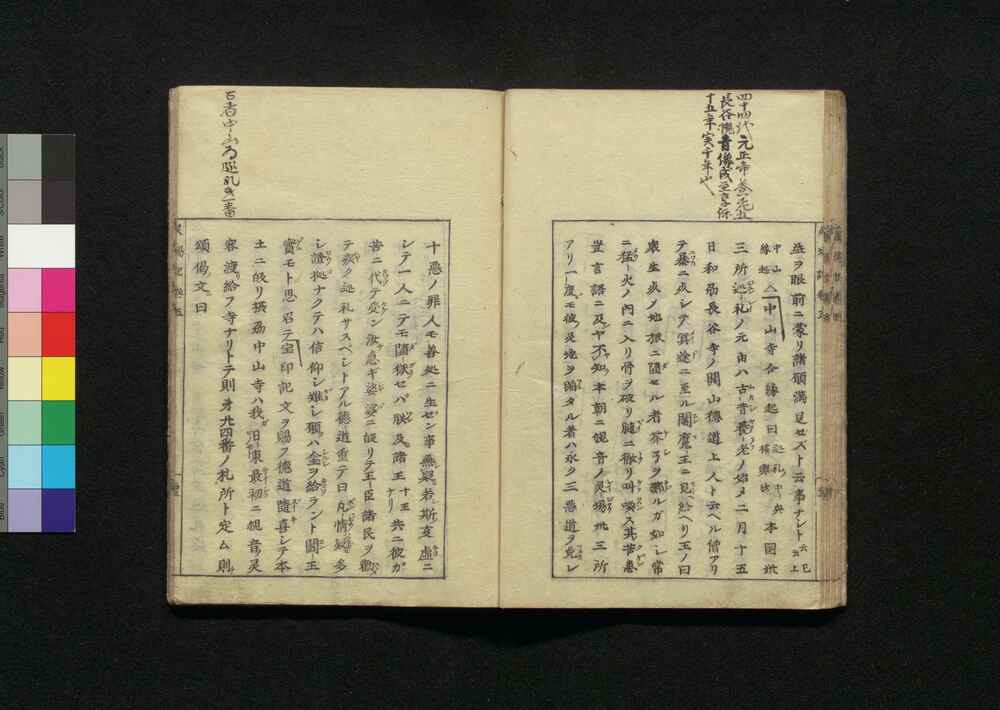 四十四代元正帝養老五
長谷観音像成至享保
十五年実千年也
益ヲ眼前ニ蒙リ諸願満足セズト云事ナシト云云已上
中山寺
縁起ニ
中山寺合縁起曰巡礼中興也
本國卅
三所巡礼ノ元由ハ古昔養老ノ始メ二月十五
日和刕長谷寺ノ開山徳道上人ト云ヘル僧アリ
テ暴ニ疾シテ冥途ニ至ル閻魔王ニ見給ヘリ王ノ曰
衆生疾ノ地獄ニ墮セル者芥子ヲ
ルガ如シ常
ニ猛火ノ内ニ入リ骨ヲ砕リ髄ニ徹リ叫喚ス其苦患
豈言語ニ及ヤ不知本朝ニ観音ノ灵場卅三所
アリ一度モ彼灵地ヲ蹈タル者ハ永ク三悪道ヲ免レ
十悪ノ罪人モ善処ニ生セン事無疑若斯支虚ニ
シテ一人ニテモ墮獄セバ朕及諸王十王ナリ共ニ彼ガ
苦ニ代テ受ン汝急ギ娑婆ニ皈リテ王臣諸民ヲ勸
テ
ク巡礼サスベシトアル徳道重テ曰凡情疑多
シ證拠ナクテハ信仰シ難シ願ハ
ヲ給ラント閻王
實モト思召テ宝印記文ヲ賜フ徳道隨喜シテ本
土ニ皈リ摂刕中山寺ハ我日東最初ニ観音ノ灵
容渡リ給フ寺ナリトテ則第廿四番ノ札所ト定ム則
頌偈文曰
古者中山為巡礼之一番